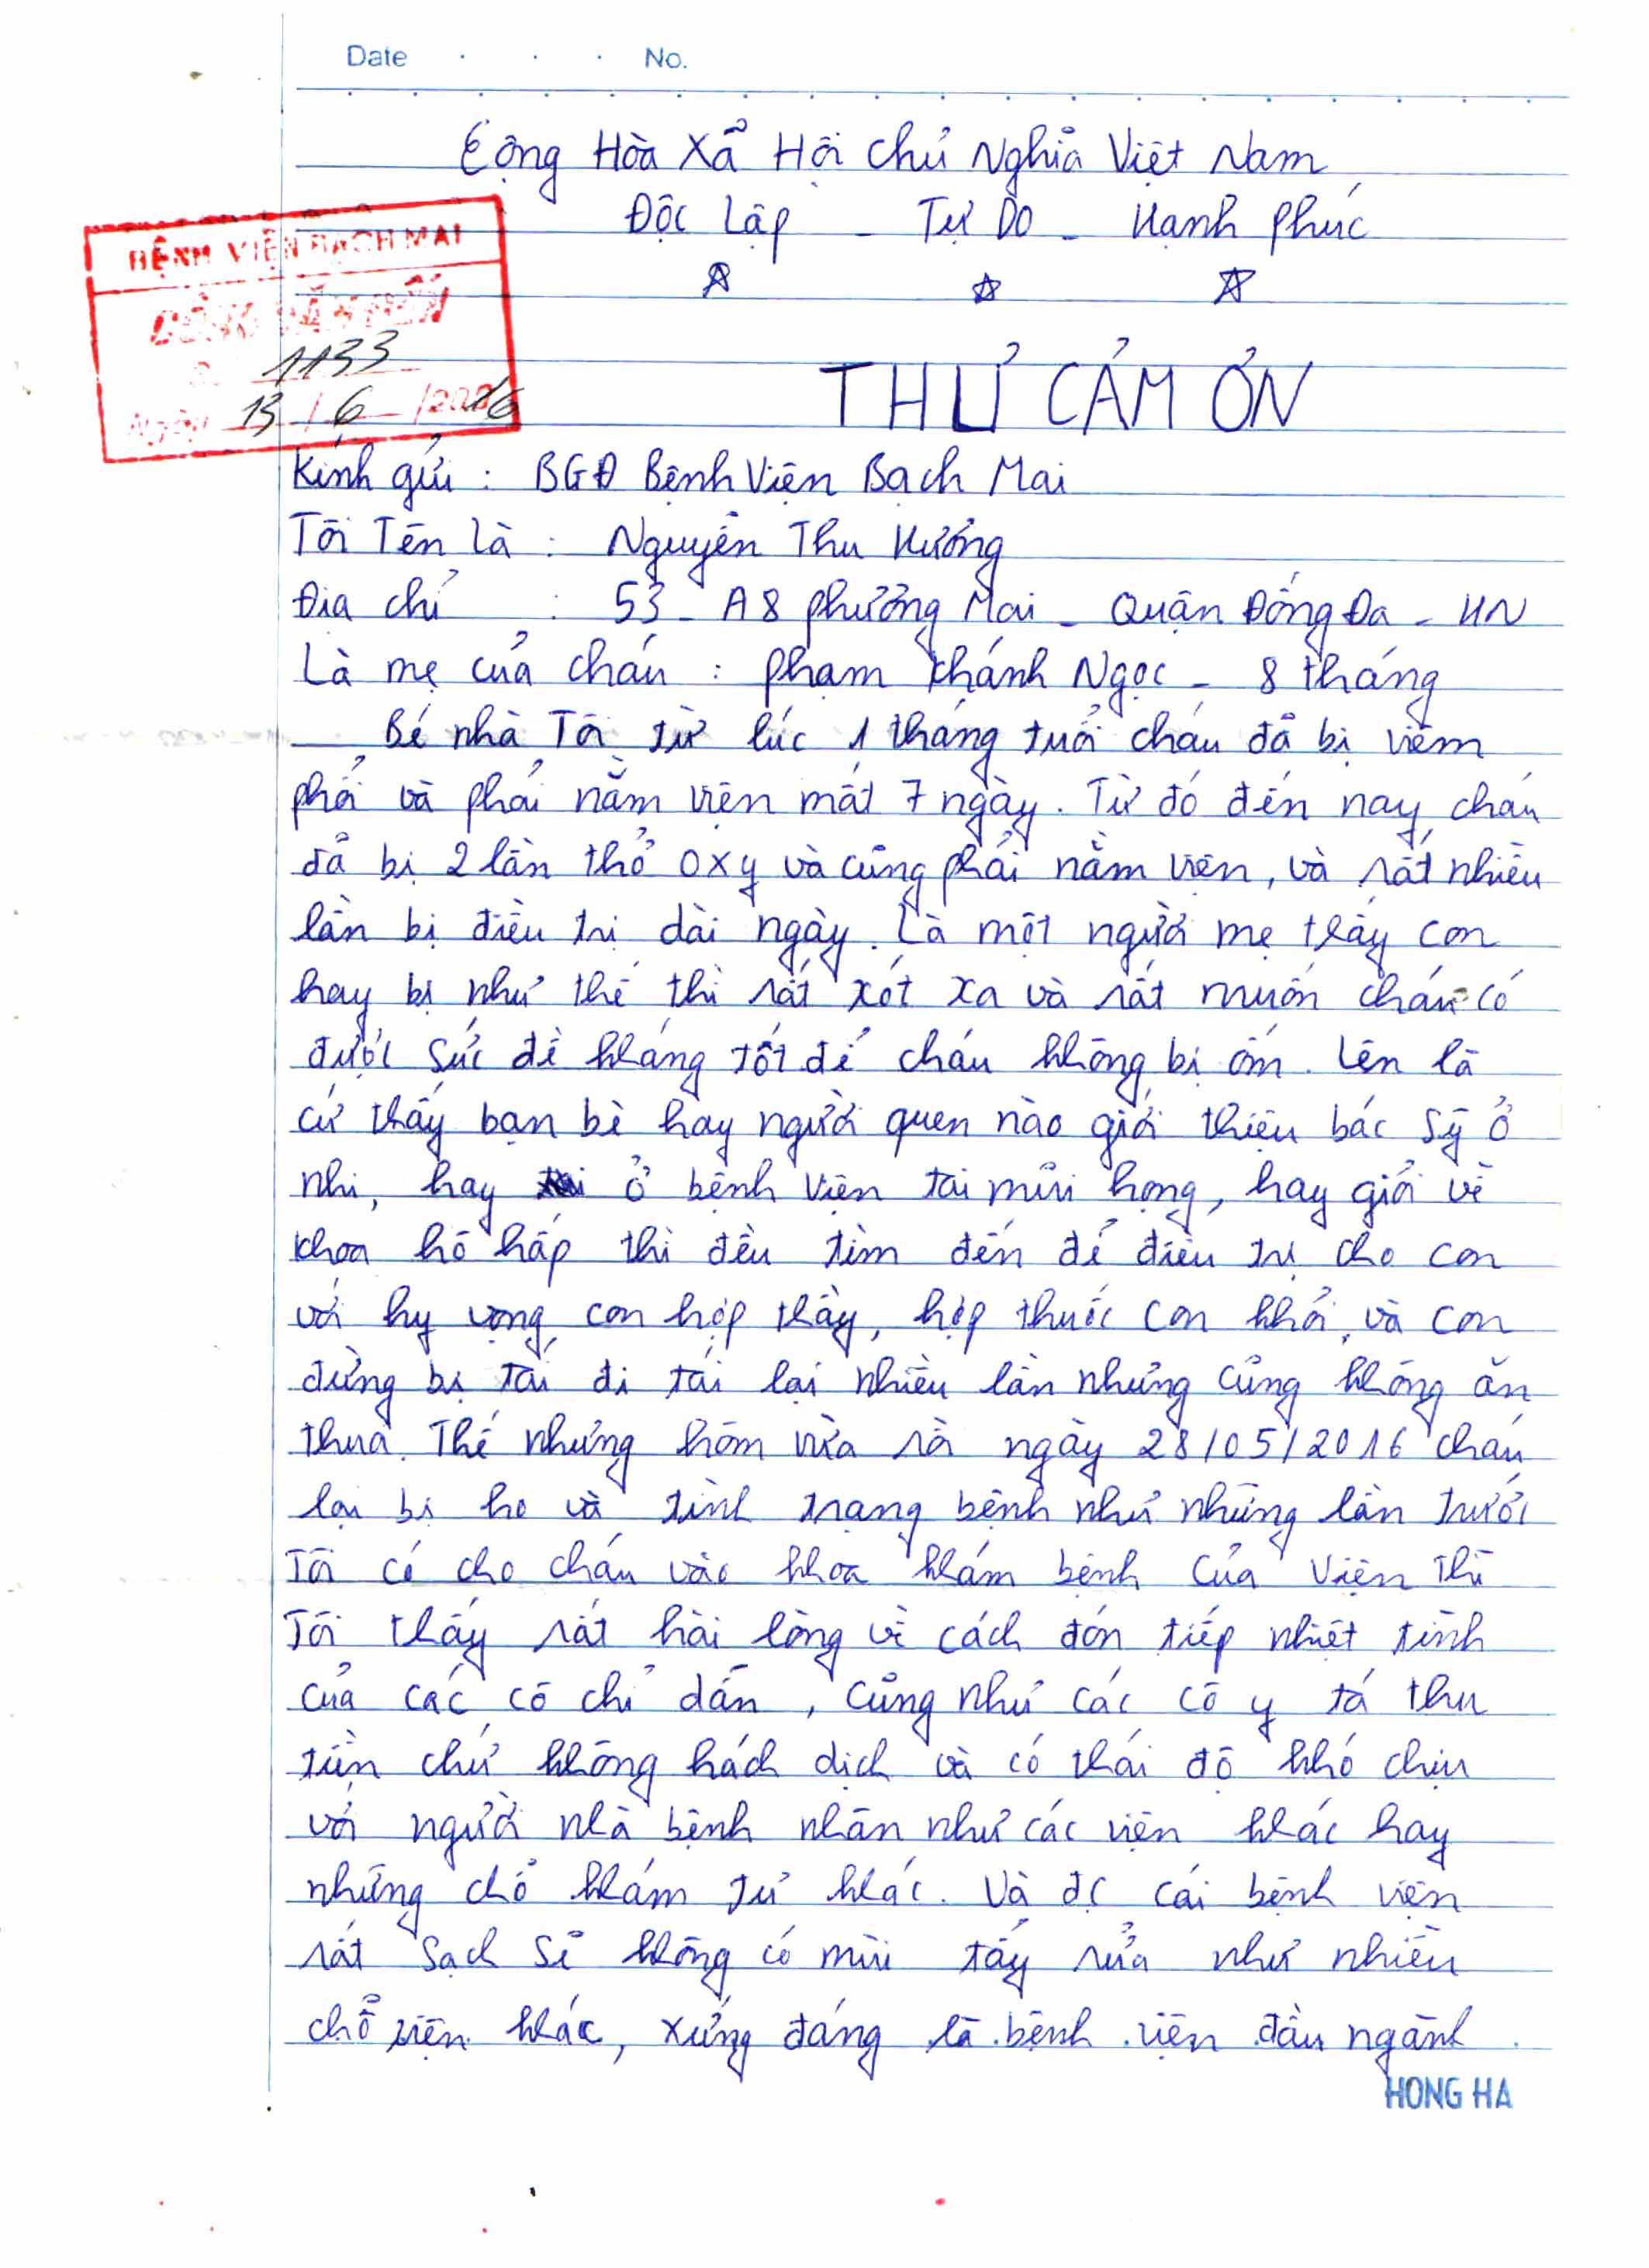 Date . . . No.
Cộng Hòa Xã Hội Chủ Nghĩa Việt Nam
Độc Lập - Tự Do - Hạnh phúc
BỆNH VIỆN BẠCH MAI
CÔNG VĂN ĐẾN
1133
Ngày 13 / 6 / 2016
THƯ CẢM ƠN
Kính gửi : BGĐ Bệnh Viện Bạch Mai
Tôi Tên là : Nguyễn Thu Hường
Địa chỉ : 53 - A8 phương Mai - Quận Đống Đa - HN
Là mẹ của cháu : phạm Khánh Ngọc - 8 tháng
Bé nhà Tôi từ lúc 1 tháng tuổi cháu đã bị viêm
phổi và phải nằm viện mất 7 ngày. Từ đó đến nay, cháu
đã bị 2 lần thở oxy và cũng phải nằm viện, và rất nhiều
lần bị điều trị dài ngày. Là một người mẹ thấy con
hay bị như thế thì rất xót xa và rất muốn cháu có
được sức đề kháng tốt để cháu không bị ốm. Lên là
cứ thấy bạn bè hay người quen nào giới thiệu bác sỹ ở
nhi, hay ở bệnh viện tai mũi họng, hay giỏi về
khoa hô hấp thì đều tìm đến để điều trị cho con
với hy vọng con hợp thầy, hợp thuốc con khỏi, và con
đừng bị tái đi tái lại nhiều lần nhưng cũng không ăn
thua. Thế nhưng hôm vừa rồi ngày 28/05/2016 cháu
lại bị ho và tình trạng bệnh như những lần trước
Tôi có cho cháu vào khoa khám bệnh của Viện thì
Tôi thấy rất hài lòng về cách đón tiếp nhiệt tình
của các cô chỉ dẫn, cũng như các cô y tá thu
tiền chứ không hách dịch và có thái độ khó chịu
với người nhà bệnh nhân như các viện khác hay
những chỗ khám tư khác. Và đc cái bệnh viện
rất sạch sẽ không có mùi tẩy rửa như nhiều
chỗ viện khác, xứng đáng là bệnh viện đầu ngành.
HONG HA